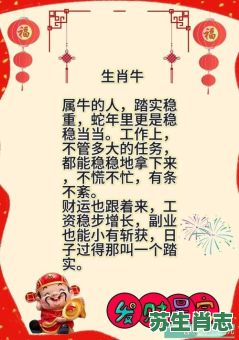 福
福
生肖牛
属牛的人，踏实稳
重，蛇年里更是稳
稳当当。工作上，
不管多大的任务，
都能稳稳地拿下来
，不慌不忙，有条
不紊。
财运也跟着来，工
资稳步增长，副业
也能小有斩获，日
子过得那叫一个踏
实。
发财
苏生肖志